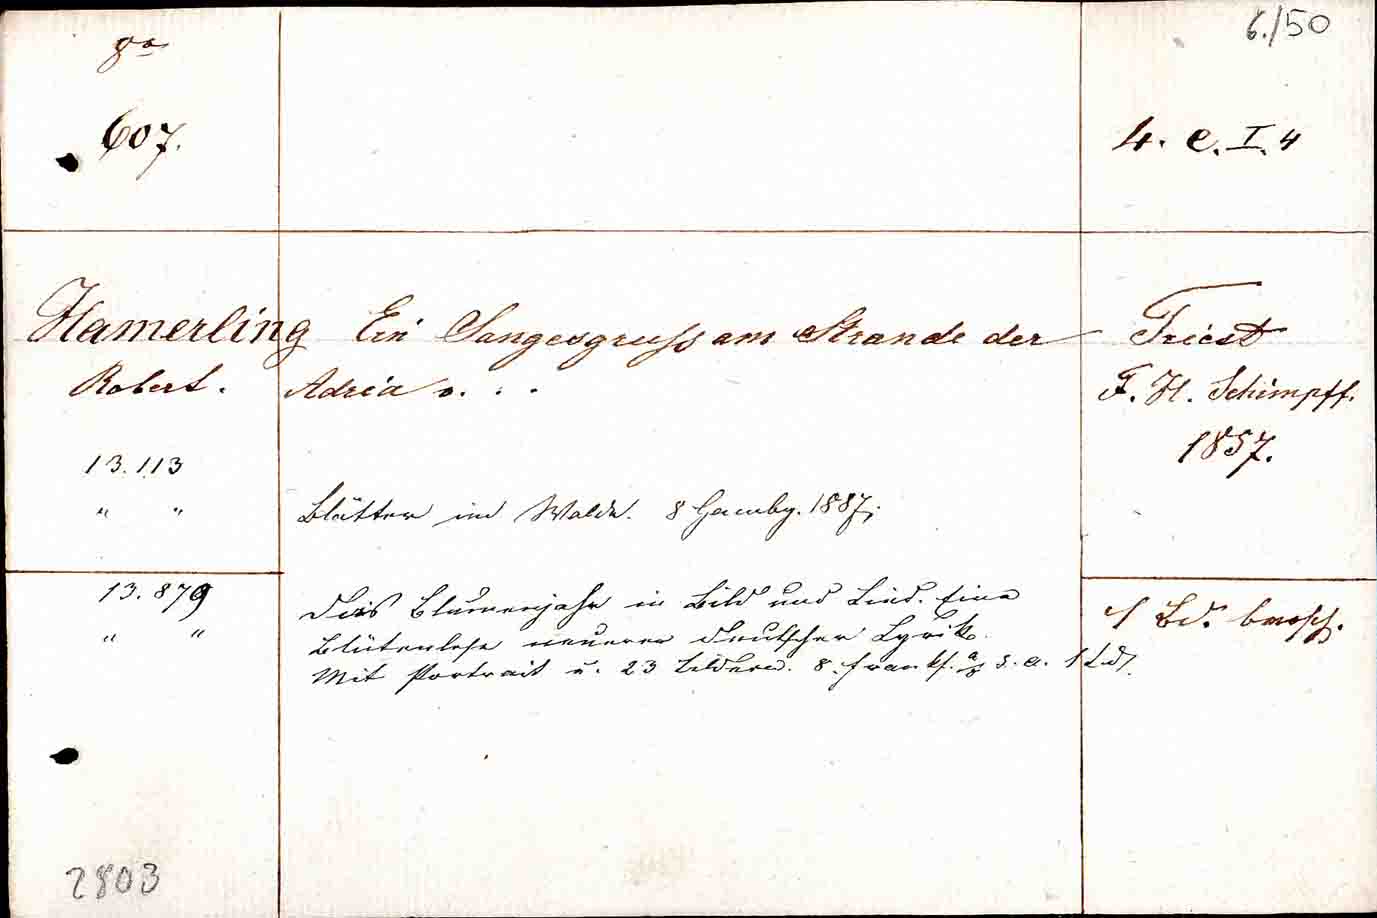 8°
6./50
607.
4. e. I. 4
Hamerling Ein Sangesgruss am Strande der Triest
Robert. Adria . . . F. H. Schimpff.
1857.
13.113
" " Blätter im Walde. 8 Hambg. 1887.
13.879 Das Blumenjahr in Bild und Lied. Eine 1 Bd. brosch.
" " Blütenlese neuerer deutscher Lyrik.
Mit Portrait u. 23 Bildern. 8. Frankf. a/O s. a. 1 Bd.
2803